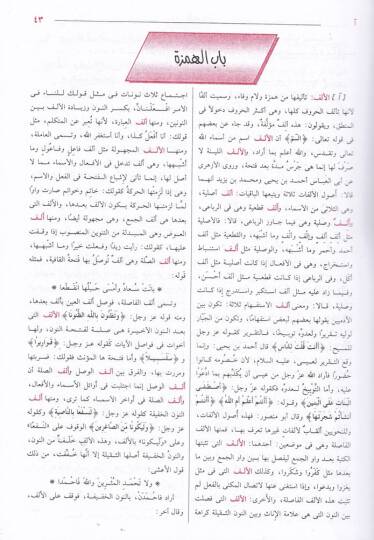 آ
٤٣
باب الهمزة
[آ] الألف: تأليفها من همزة ولام وفاء، وسميت ألفًا
لأنها تألف الحروف كلها، وهي أكثر الحروف دخولًا في
المنطق، ويقولون: هذه ألف مؤلَّفة، وقد جاء عن بعضهم
في قوله تعالى: ﴿الم﴾ أن الألف اسم من أسماء الله
تعالى وتقدس، والله أعلم بما أراد، والألف اللينة لا
صرف لها إنما هي جرس مدة بعد فتحة، وروى الأزهري
عن أبي العباس أحمد بن يحيى ومحمد بن يزيد أنهما
قالا: أصول الألفات ثلاثة ويتبعها الباقيات: ألف أصلية،
وهي في الثلاثي من الأسماء، وألف قطعية وهي في الرباعي،
وألف وصلية وهي فيما جاوز الرباعي، قالا: فالأصلية
مثل ألف ألف وإلف وألف وما أشبهه، والقطعية مثل ألف
أحمد وأحمر وما أشبهه، والوصلية مثل ألف استنباط
واستخراج، وهي في الأفعال إذا كانت أصلية مثل ألف
أكل، وفي الرباعي إذا كانت قطعية مثل ألف أحسن،
وفيما زاد عليه مثل ألف استكبر واستدرج إذا كانت
وصلية، قالا: ومعنى ألف الاستفهام ثلاثة: تكون بين
الآدميين يقولها بعضهم لبعض استفهامًا، وتكون من الجبار
لوليه تقريرًا ولعدوه توبيخًا، فالتقرير كقوله عز وجل
للمسيح: ﴿أأنت قلت للناس﴾ قال أحمد بن يحيى: وإنما
وقع التقرير لعيسى، عليه السلام، لأن خصومه كانوا
حضورًا فأراد الله عز وجل من عيسى أن يكذبهم بما ادعوا
عليه، وأما التوبيخ لعدوه فكقوله عز وجل: ﴿أصطفى
البنات على البنين﴾ وقوله: ﴿أأنتم أعلم أم الله﴾ ﴿أأنتم
أنشأتم شجرتها﴾ وقال أبو منصور: فهذه أصول الألفات،
وللنحويين ألقاب لألفات غيرها تعرف بها، فمنها الألف
الفاصلة وهي في موضعين: أحدهما: الألف التي تثبتها
الكتبة بعد واو الجمع ليفصل بها بين واو الجمع وبين ما
بعدها مثل كفروا وشكروا، وكذلك الألف التي في مثل
يغزوا ويدعوا، وإذا استغني عنها لاتصال المكني بالفعل لم
تثبت هذه الألف الفاصلة، والأخرى: الألف التي فصلت
بين النون التي هي علامة الإناث وبين النون الثقيلة كراهة
اجتماع ثلاث نونات في مثل قولك للنساء في
الأمر افعلنان، بكسر النون وزيادة الألف بين
النونين، ومنها ألف العبارة لأنها تعبر عن المتكلم، مثل
قولك: أنا أفعل كذا، وأنا أستغفر الله، وتسمى العاملة،
ومنها الألف المجهولة مثل ألف فاعل وفاعول وما
أشبهها، وهي ألف تدخل في الأفعال والأسماء مما لا
أصل لها، إنما تأتي لإشباع الفتحة في الفعل والاسم،
وهي إذا لزمتها الحركة كقولك: خاتم وخواتم صارت واوًا
لما لزمتها الحركة بسكون الألف بعدها، والألف التي
بعدها هي ألف الجمع، وهي مجهولة أيضًا، ومنها ألف
العوض وهي المبدلة من التنوين المنصوب إذا وقفت
عليها، كقولك: رأيت زيدًا وفعلت خيرًا وما أشبهها،
ومنها ألف الصلة وهي ألف توصل بها فتحة القافية، فمثله
قوله:
بانت سعاد وأمسى حبلها انقطعا
وتسمى ألف الفاصلة، فوصل ألف العين بألف بعدها،
ومنه قوله عز وجل: ﴿وتظنون بالله الظنونا﴾ الألف التي
بعد النون الأخيرة هي صلة لفتحة النون، ولها
أخوات في فواصل الآيات كقوله عز وجل: ﴿قواريرا﴾
و ﴿سلسبيلا﴾ وأما فتحة ها المؤنث فقولك: ضربتها
ومررت بها، والفرق بين ألف الوصل وألف الصلة أن
ألف الوصل إنما اجتلبت في أوائل الأسماء والأفعال،
وألف الصلة في أواخر الأسماء كما ترى، ومنها ألف
النون الخفيفة كقوله عز وجل: ﴿لنسفعًا بالناصية﴾ وكقوله
عز وجل: ﴿وليكونًا من الصاغرين﴾ الوقوف على لنسفعا
وعلى وليكونا بالألف، وهذه الألف خلف من النون،
والنون الخفيفة أصلها الثقيلة إلا أنها خففت، من ذلك
قول الأعشى:
ولا تحمد المثرين والله فاحمدا
أراد فاحمدن، بالنون الخفيفة، فوقف على الألف،
وقال آخر: